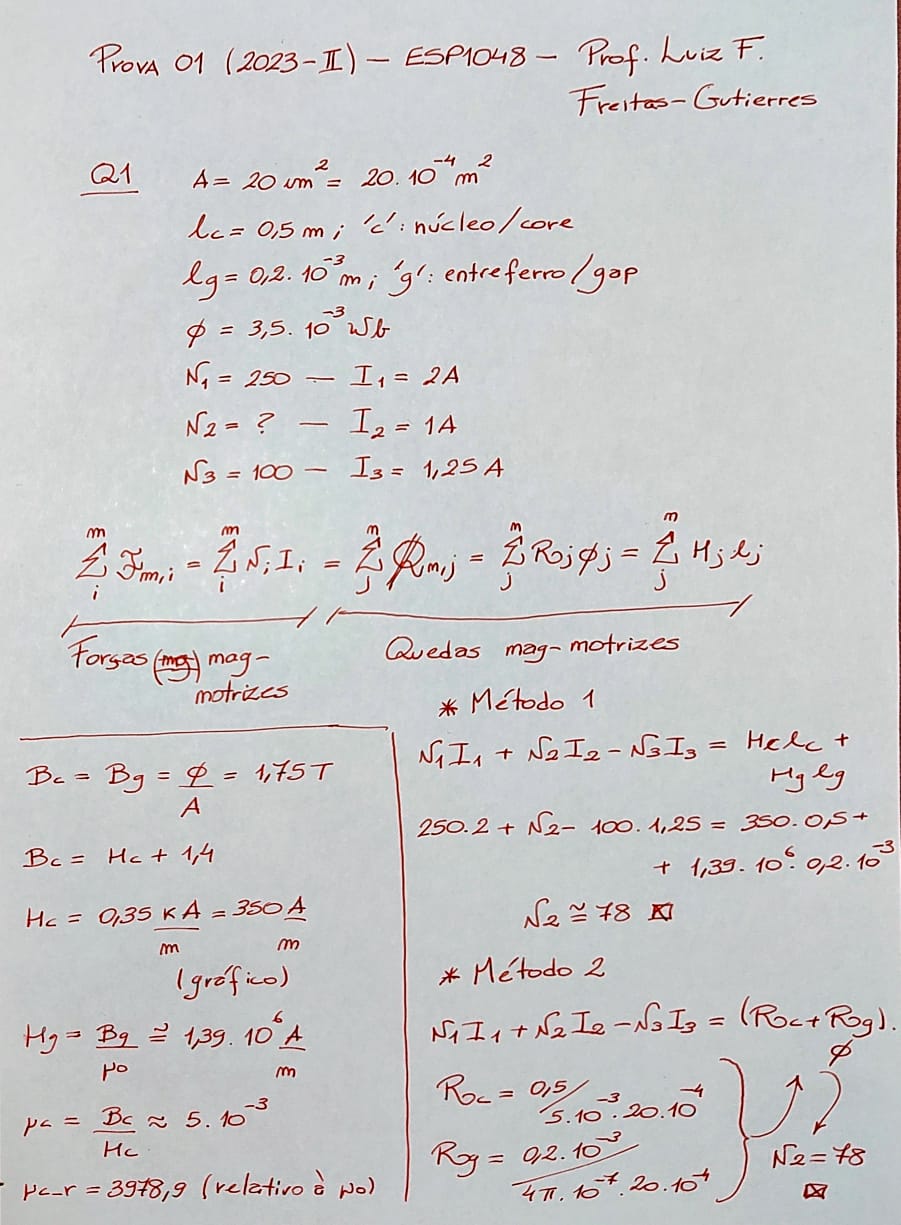 Prova 01 (2023-II) – ESP1048 – Prof. Luiz F.
Freitas-Gutierres
Q1
A = 20 cm² = 20.10⁻⁴ m²
lc = 0,5 m ; 'c': núcleo/core
lg = 0,2.10⁻³ m ; 'g': entreferro/gap
ϕ = 3,5.10⁻³ Wb
N₁ = 250 — I₁ = 2A
N₂ = ? — I₂ = 1A
N₃ = 100 — I₃ = 1,25 A
m∑i ℱm,i = m∑i Ni Ii = m∑j ℱm,j = m∑j Roj ϕj = m∑j Hj lj
Forças mag-
motrizes
Quedas mag-motrizes
Bc = Bg = ϕ/A = 1,75 T
Bc = Hc + 1,4
Hc = 0,35 kA/m = 350 A/m
(gráfico)
Hg = Bg/μ0 ≅ 1,39.10⁶ A/m
μc = Bc/Hc ≈ 5.10⁻³
μc_r = 3978,9 (relativo à μ0)
* Método 1
N₁I₁ + N₂I₂ – N₃I₃ = Hclc +
Hglg
250.2 + N₂ – 100.1,25 = 350.0,5 +
+ 1,39.10⁶.0,2.10⁻³
N₂ ≅ 78
* Método 2
N₁I₁ + N₂I₂ – N₃I₃ = (Roc + Rog).
ϕ
Roc = 0,5/5.10⁻³.20.10⁻⁴
Rog = 0,2.10⁻³/4π.10⁻⁷.20.10⁻⁴
N₂ = 78